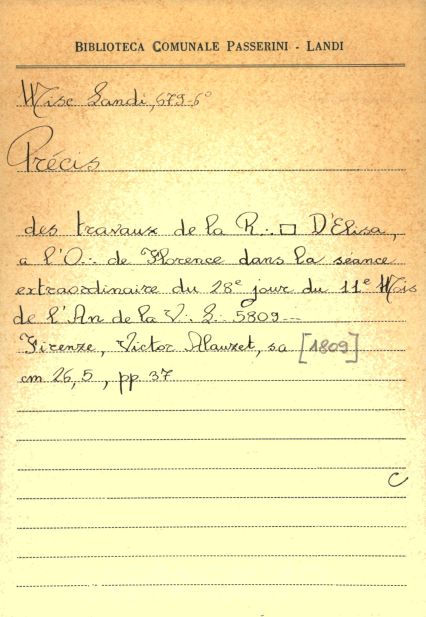 BIBLIOTECA COMUNALE PASSERINI - LANDI
Misc Landi, 679-6°
Précis
des travaux de la R∴ □ D'Elisa,
a l'O∴ de Florence dans la séance
extraordinaire du 28e jour du 11e Mois
de l'An de la V. L. 5809 -
Firenze, Victor Alauzet, sa [1809]
cm 26,5, pp 37
C